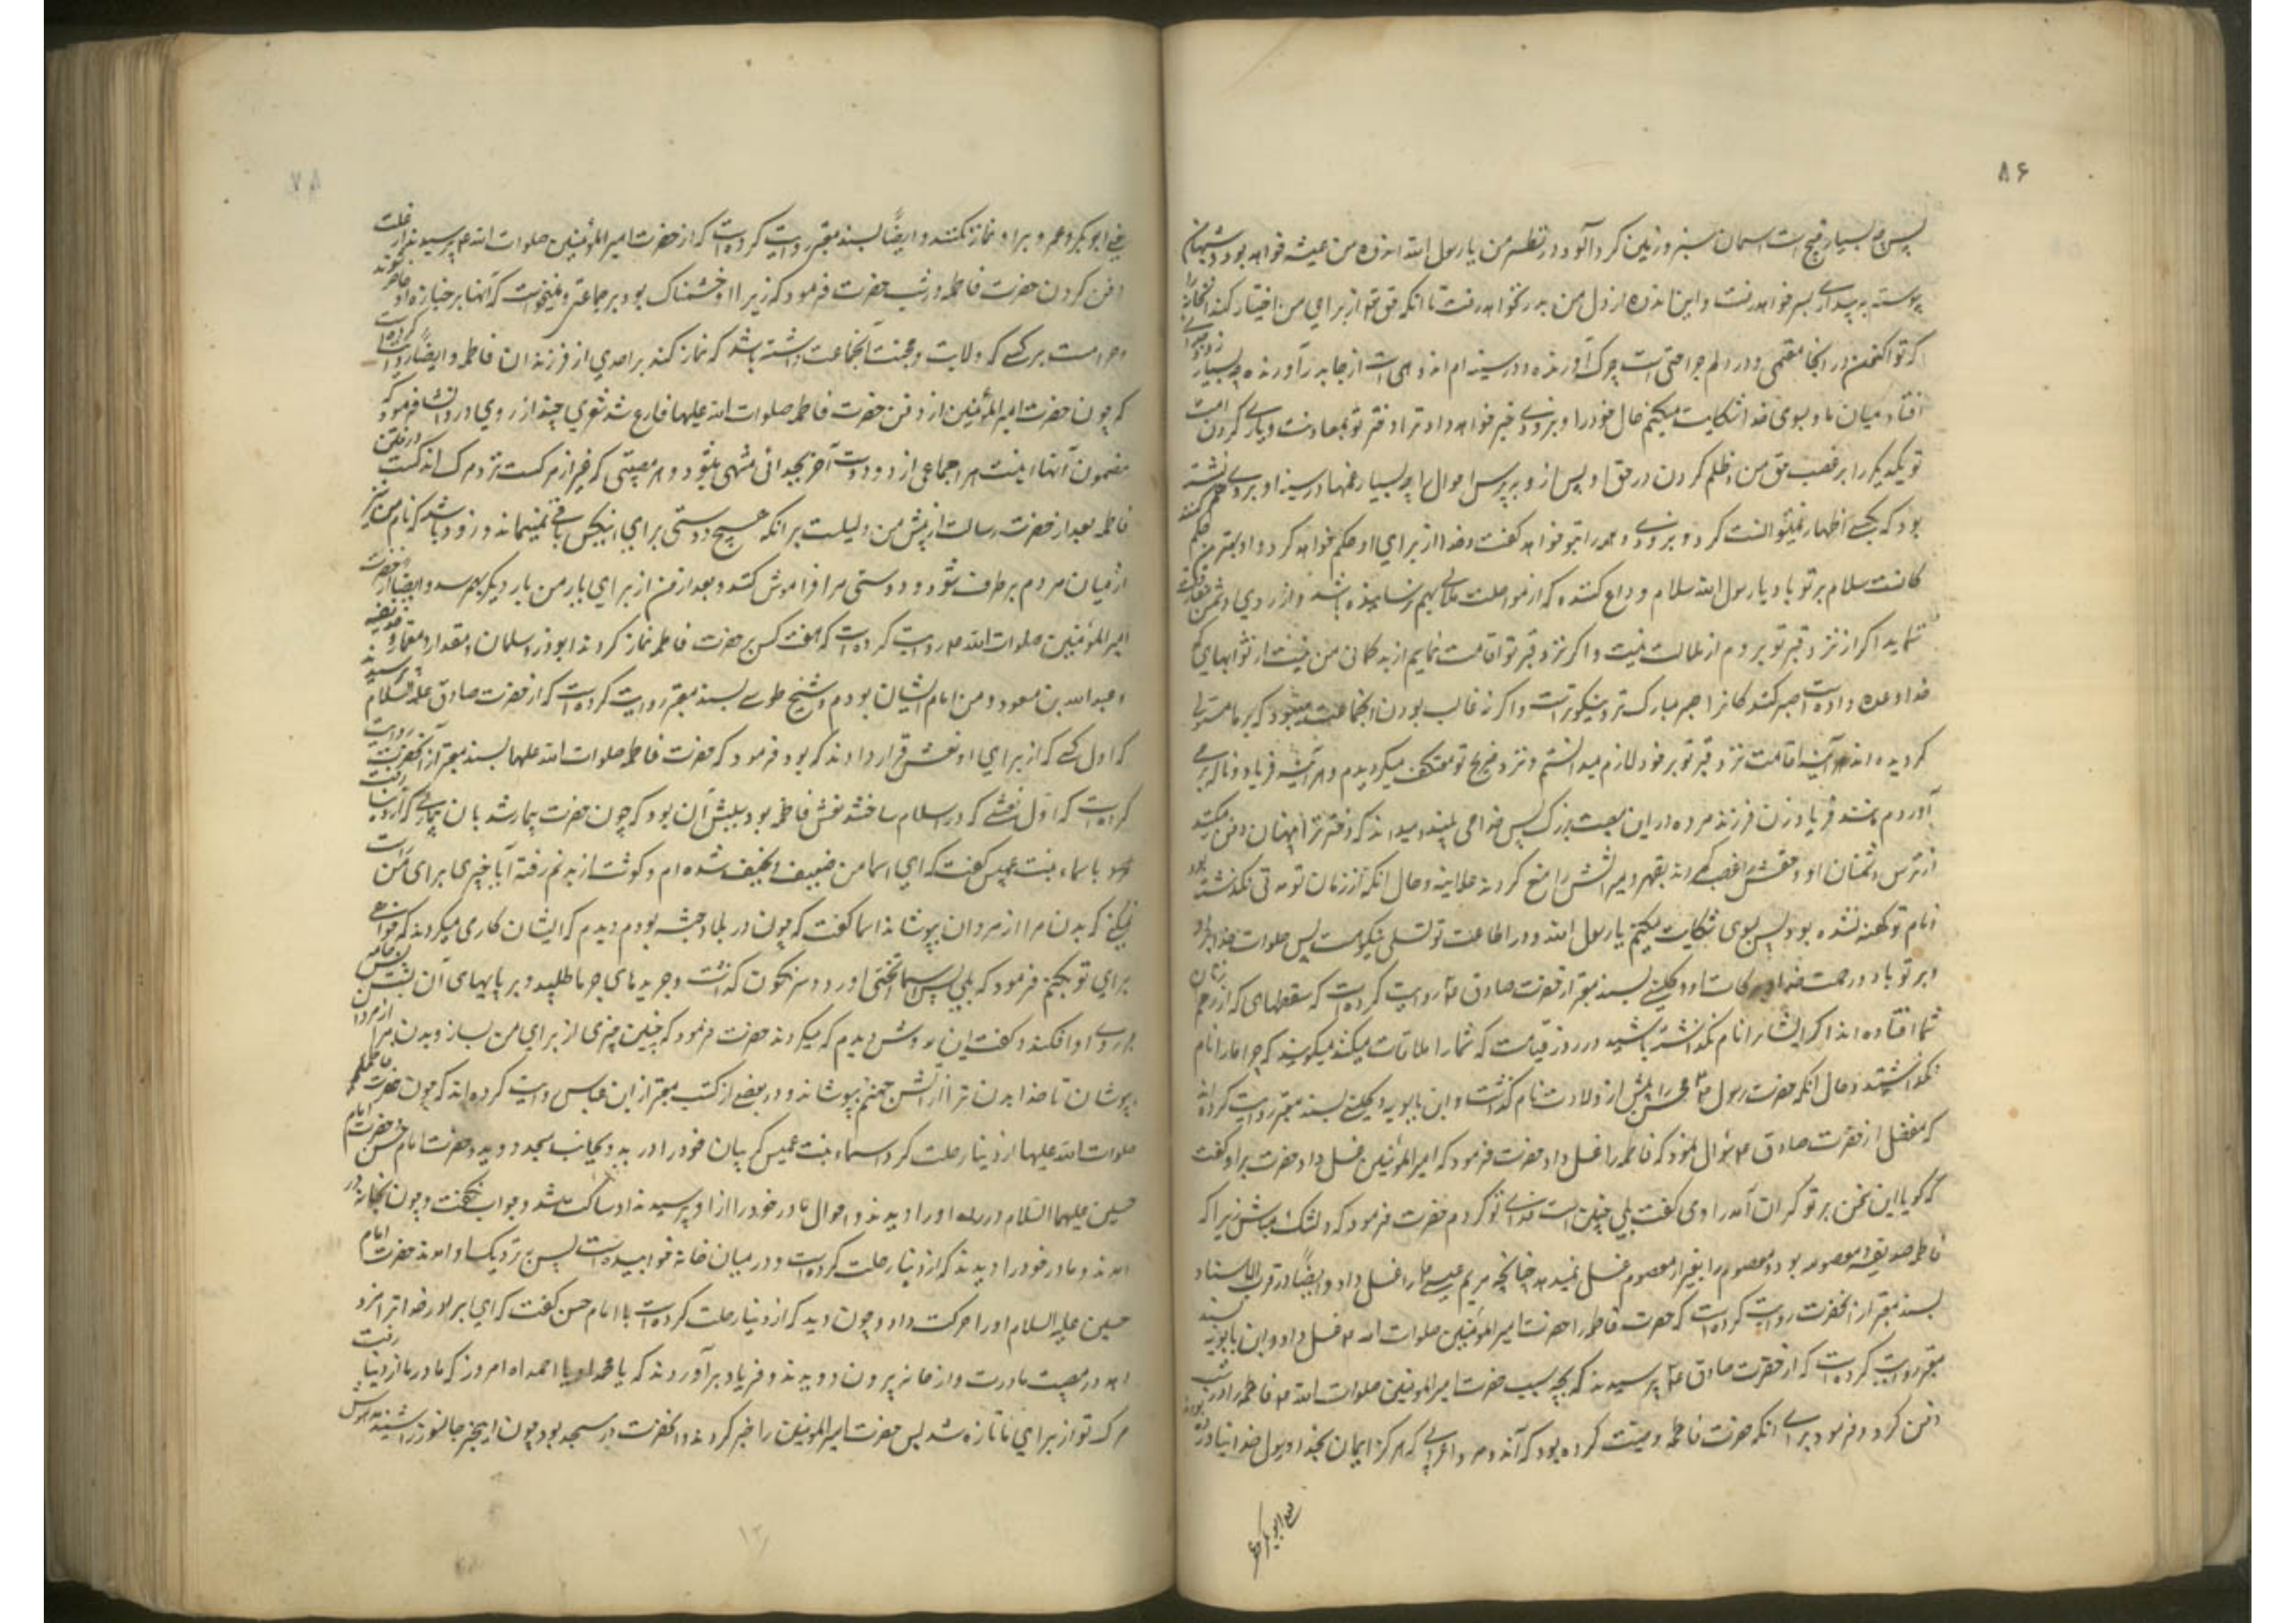 ۸۶
پس چه بسیار قبیح است آسمان سبز و زمین گرد آلود در نظر من یا رسول الله اندوه من همیشه خواهد بود و شبهای من
پیوسته به بیداری بسر خواهد رفت و این اندوه از دل من بدر نخواهد رفت تا آنکه حق تعالی از برای من اختیار کند آنخانه را
که تو اکنون در آنجا مقیمی و در دلم جراحتی است چرک آورنده و در سینه ام اندوهی است از جا بدر آورنده چه بسیار زود جدائی
افتاد میان ما و بسوی خدا شکایت میکنم حال خود را و بزودی خبر خواهد داد ترا دختر تو بمعاونت و یاری کردن امت
تو یکدیگر را بر غصب حق من و ظلم کردن در حق او پس از او بپرس احوال را چه بسیار غمها در سینه او بر روی هم نشسته
بود که بکسی اظهار نمیتوانست کرد و بزودی همه را بتو خواهد گفت و خدا از برای او حکم خواهد کرد و او بهترین حکم کنندگان است
سلام بر تو باد یا رسول الله سلام وداع کننده که از مواصلت ملالی بهم نرسانیده باشد و از روی دشمنی مفارقت
ننماید اگر از نزد قبر تو بروم از ملالت نیست و اگر نزد قبر تو اقامت نمایم از بد گمانی من نیست از ثوابهای که
خدا وعده داده است صبر کنندگان را و صبر مبارک تر و نیکوتر است و اگر نه غالب بودن آنجماعت میبود که بر ما مستولی
گردیده اند هر آینه اقامت نزد قبر تو بر خود لازم میدانستم و نزد ضریح تو معتکف میگردیدم و هر آینه فریاد و ناله بر می
آوردم مانند فریاد زن فرزند مرده در این مصیبت بزرگ پس خدا می بیند و میداند که دختر ترا پنهان دفن میکنم
از ترس دشمنان او و حقش را غصب کردند بقهر و میراثش را منع کردند علانیه و حال آنکه از زمان تو مدتی نگذشته بود
و نام تو کهنه نشده بود پس بسوی تو شکایت میکنم یا رسول الله و در اطاعت تو تسلی نیکوست پس صلوات خدا بر او
و بر تو باد و رحمت خدا و برکات او و کلینی بسند معتبر از حضرت صادق ع روایت کرده است که سقطهای که از رحم زنان
شما افتاده اند اگر ایشان را نام نگذاشته باشید در روز قیامت که شما را ملاقات میکنند میگویند که چرا ما را نام
نگذاشتید و حال آنکه حضرت رسول ص محسن را پیش از ولادت نام گذاشت و ابن بابویه و کلینی بسند معتبر روایت کرده اند
که مفضل از حضرت صادق ع سؤال نمود که فاطمه را غسل داد حضرت فرمود که امیرالمؤمنین غسل داد حضرت براوی گفت
که گویا این سخن بر تو گران آمد راوی گفت بلی چنین است فدای تو گردم حضرت فرمود که دلتنگ مباش زیرا که
فاطمه صدیقه و معصومه بود و معصوم را بغیر از معصوم غسل نمیدهد چنانچه مریم را عیسی غسل داد و ایضا در قرب الاسناد
بسند معتبر از آنحضرت روایت کرده است که حضرت فاطمه را حضرت امیرالمؤمنین صلوات الله علیه غسل داد و ابن بابویه بسند
معتبر روایت کرده است که از حضرت صادق ع پرسیدند که بچه سبب حضرت امیرالمؤمنین صلوات الله علیه فاطمه را در شب
دفن کرد و فرمود برای آنکه حضرت فاطمه وصیت کرده بود که آن دو مرد اعرابی که هرگز ایمان بخدا و رسول خدا نیاورده بودند
یعنی ابوبکر و عمر
یعنی ابوبکر و عمر و بر او نماز نکنند و ایضاً بسند معتبر روایت کرده است که از حضرت امیرالمؤمنین صلوات الله علیه پرسیدند از علت
دفن کردن حضرت فاطمه در شب حضرت فرمود که زیرا او خشمناک بود بر جماعتی و نمیخواست که آنها بر جنازه او حاضر شوند
و حرامست بر کسی که ولایت و محبت آنجماعت داشته باشد که نماز کند بر احدی از فرزندان فاطمه و ایضاً روایت کرده است
که چون حضرت امیرالمؤمنین از دفن حضرت فاطمه صلوات الله علیها فارغ شد شعری چند از روی درد انشا فرمود که
مضمون آنها اینست هر اجتماعی از دو دوست آخر بجدائی منتهی میشود و هر مصیبتی که غیر از مرگست نزد مرگ اندکست و رفتن
فاطمه بعد از حضرت رسالت از پیش من دلیلست بر آنکه هیچ دوستی برای هیچکس باقی نمیماند و زود باشد که نام من نیز
از میان مردم برطرف شود و دوستی مرا فراموش کنند و بعد از من از برای یار من یار دیگر بهم رسد و ایضا از حضرت
امیرالمؤمنین صلوات الله علیه روایت کرده است که هفت کس بر حضرت فاطمه نماز کردند ابوذر و سلمان و مقداد و عمار و حذیفه
و عبدالله بن مسعود و من امام ایشان بودم و شیخ طوسی بسند معتبر روایت کرده است که از حضرت صادق علیه السلام پرسیدند
که اول کسی که از برای او نعش قرار دادند که بود فرمود که حضرت فاطمه صلوات الله علیها بسند معتبر از آنحضرت روایت
کرده است که اول نعشی که در اسلام ساختند نعش فاطمه بود سببش آن بود که چون حضرت بیمار شد بآن بیماری که از دنیا رفت
باسماء بنت عمیس گفت که ای اسما من ضعیف و نحیف شده ام و گوشت از بدنم رفته آیا چیزی برای من
نمیکنی که بدن مرا از مردان بپوشاند اسما گفت که چون در بلاد حبشه بودم دیدم که ایشان کاری میکردند که خواهی
برای تو بکنم فرمود که بلی پس اسما تختی آورد و سرنگون گذاشت و جریده های خرما طلبید و بر پایهای آن بست پس جامه
بر روی او افکند و گفت این روش دیدم که میکردند حضرت فرمود که چنین چیزی از برای من بساز و بدن مرا از مردان
بپوشان تا خدا بدن ترا از آتش جهنم بپوشاند و در بعضی از کتب معتبر از ابن عباس روایت کرده اند که چون حضرت فاطمه
صلوات الله علیها از دنیا رحلت کرد اسماء بنت عمیس گریبان خود را درید و بجانب مسجد دوید و حضرت امام حسن و حضرت امام
حسین علیهما السلام در راه او را دیدند و احوال مادر خود را از او پرسیدند او ساکت شد و جواب نگفت و چون بخانه در
آمدند و مادر خود را دیدند که از دنیا رحلت کرده است و در میان خانه خوابیده است پس نزدیک او آمدند حضرت امام
حسین علیه السلام او را حرکت داد و چون دید که از دنیا رحلت کرده است با امام حسن گفت که ای برادر خدا ترا مزد
دهد در مصیبت مادرت و از خانه بیرون دویدند و فریاد برآوردند که یا محمداه یا احمداه امروز که مادر ما از دنیا رفت
مرگ تو از برای ما تازه شد پس حضرت امیرالمؤمنین را خبر کردند و آنحضرت در مسجد بود چون این خبر جانسوز را شنید مدهوش